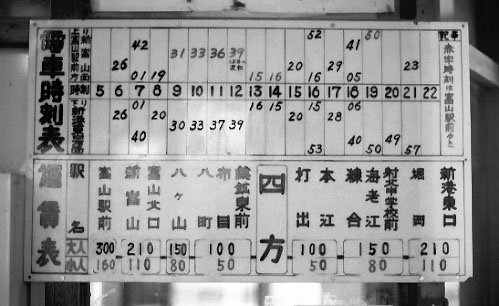 電車時刻表
52 50
42 41
31 33 36 39
26 20 29 23
01 19 15 16 16 05
時 5 6 7 8 9 10 11 12 13 14 15 16 17 18 19 20 21 22
01 16 15 15 06
26 20 20 28
30 33 37 39
40 53 40 50 49 57
記事
赤字時刻は富山駅前ゆき
運賃表
駅名 富山駅前 新富山 富山北口 八ケ山 八町 布目 鯰鉱東前 四方 打出 本江 練合 海老江 射北中学校前 堀岡 新港東口
大人 300 210 150 100 100 150 210
小人 160 110 80 50 50 80 110